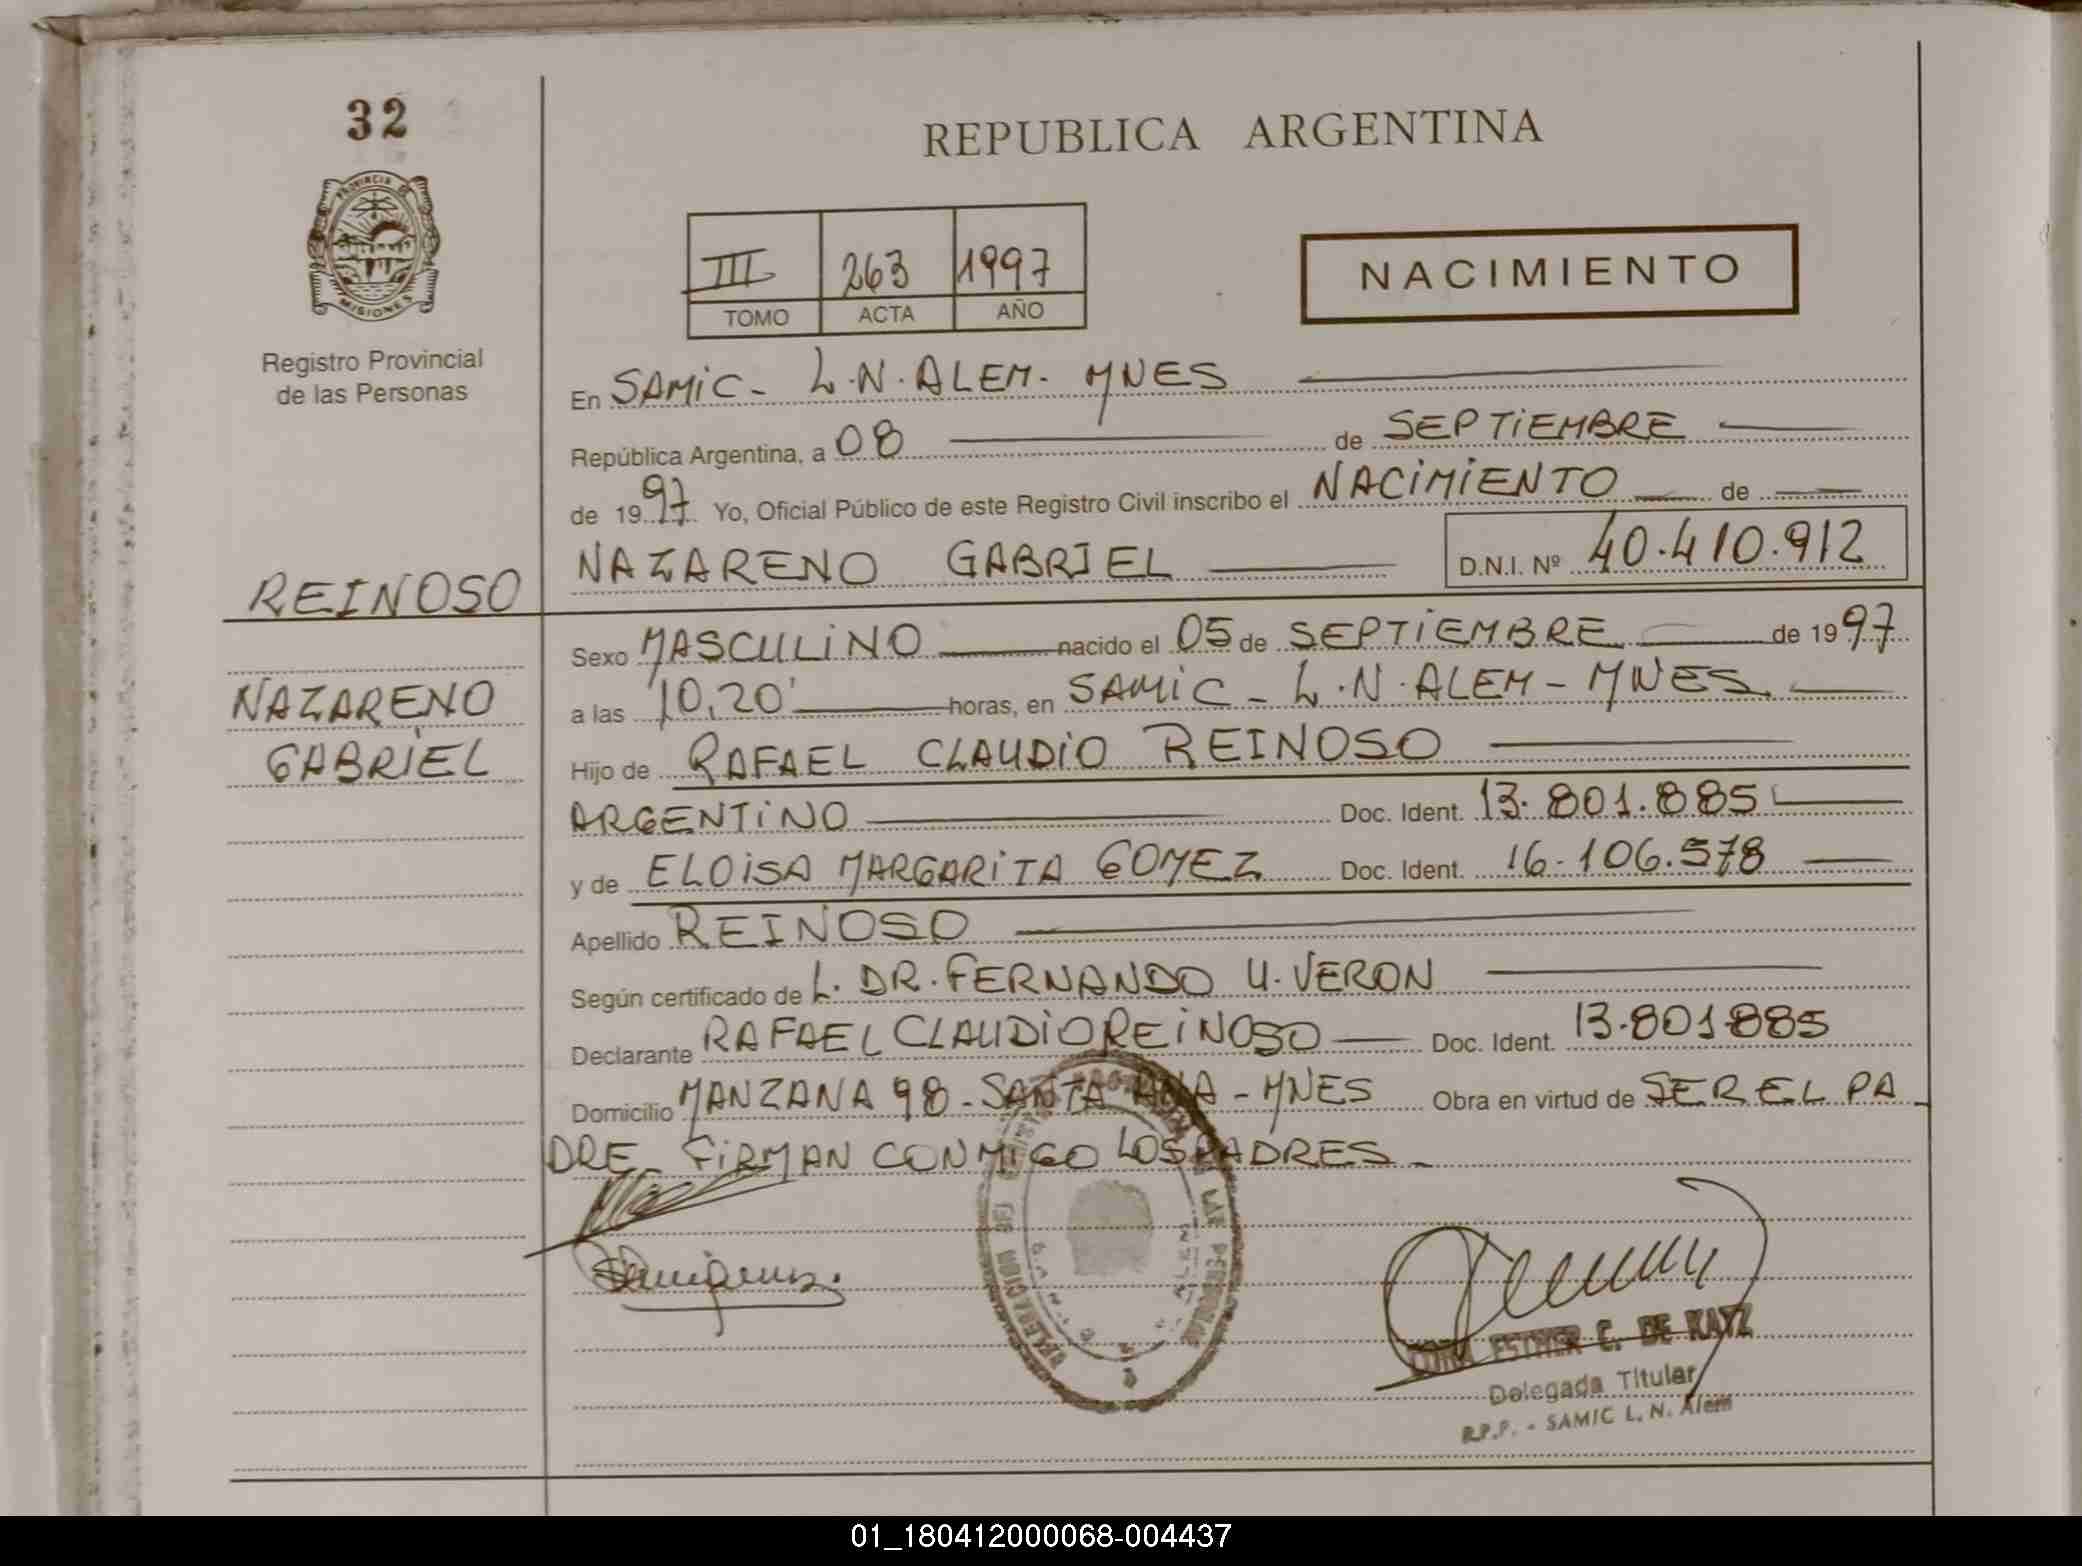 32
REPUBLICA ARGENTINA
PROVINCIA DE
MISIONES
III 263 1997
TOMO ACTA AÑO
NACIMIENTO
Registro Provincial
de las Personas
En SAMIC - L.N. ALEM - MNES
República Argentina, a 08 de SEPTIEMBRE
de 1997 Yo, Oficial Público de este Registro Civil inscribo el NACIMIENTO de
NAZARENO GABRIEL D.N.I. Nº 40.410.912
REINOSO
NAZARENO
GABRIEL
Sexo MASCULINO nacido el 05 de SEPTIEMBRE de 1997
a las 10,20' horas, en SAMIC - L.N. ALEM - MNES
Hijo de RAFAEL CLAUDIO REINOSO
ARGENTINO Doc. Ident. 13.801.885
y de ELOISA MARGARITA GOMEZ Doc. Ident. 16.106.578
Apellido REINOSO
Según certificado de L. DR. FERNANDO U. VERON
Declarante RAFAEL CLAUDIO REINOSO Doc. Ident. 13.801.885
Domicilio MANZANA 98 - SANTA ANA - MNES Obra en virtud de SER EL PA
DRE - FIRMAN CONMIGO LOS PADRES -
ESTHER C. DE KATZ
Delegada Titular
R.P.P. - SAMIC L. N. Alem
01_180412000068-004437